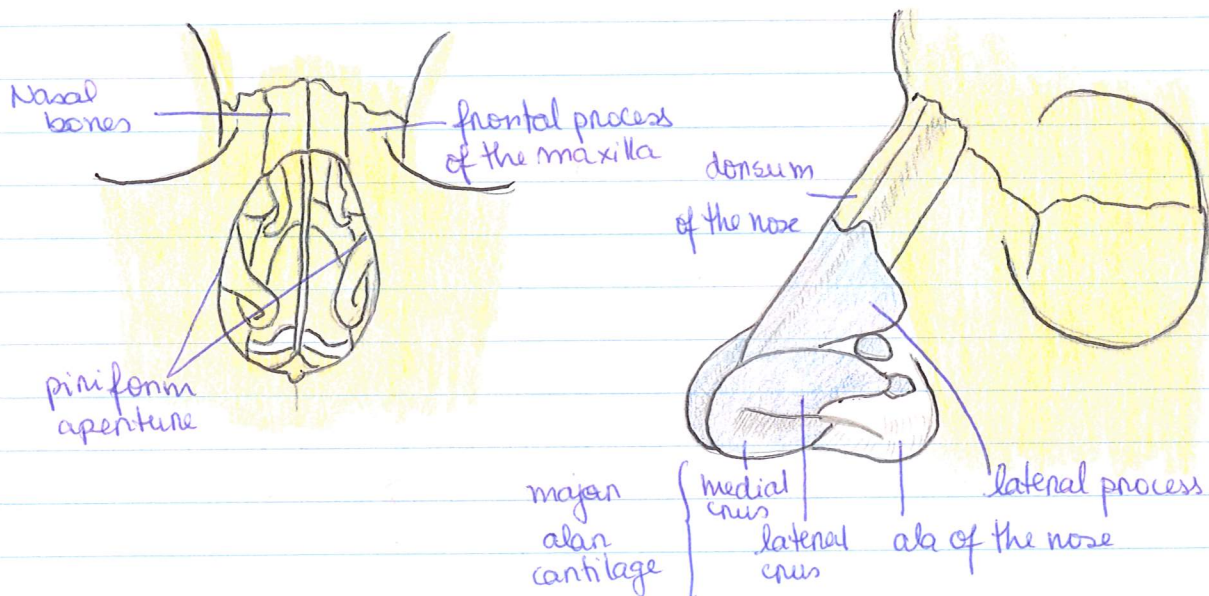 Nasal
bones
frontal process
of the maxilla
piriform
aperture
dorsum
of the nose
lateral process
ala of the nose
major
alar
cartilage
medial
crus
lateral
crus